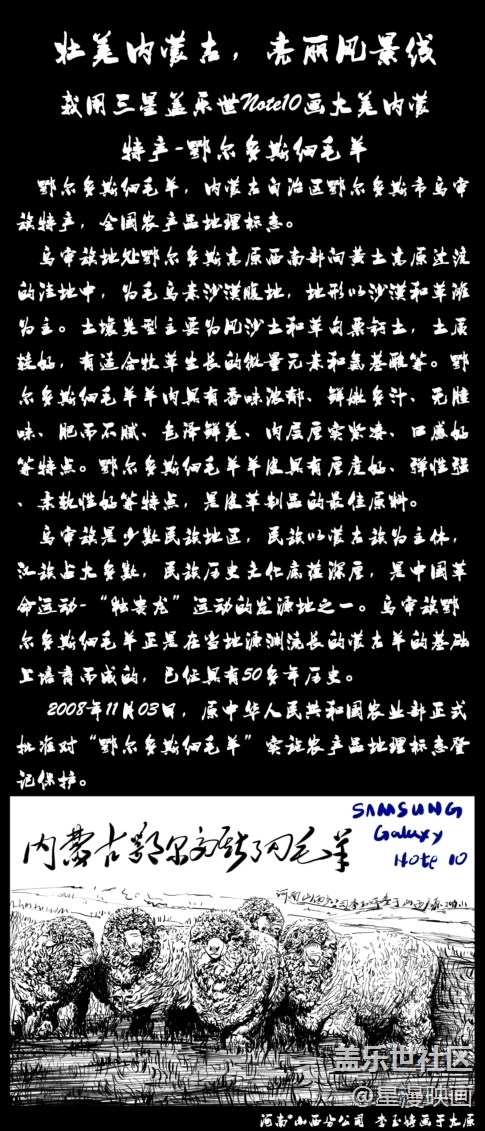 壮美内蒙古，亮丽风景线
我用三星盖乐世Note10画大美内蒙
特产-鄂尔多斯细毛羊
鄂尔多斯细毛羊，内蒙古自治区鄂尔多斯市乌审
旗特产，全国农产品地理标志。
乌审旗地处鄂尔多斯高原西南部向黄土高原过渡
的洼地中，为毛乌素沙漠腹地，地形以沙漠和草滩
为主。土壤类型主要为风沙土和草甸栗钙土，土质
较好，有适合牧草生长的微量元素和氨基酸等。鄂
尔多斯细毛羊羊肉具有香味浓郁、鲜嫩多汁、无膻
味、肥而不腻、色泽鲜美、肉层厚实紧凑、口感好
等特点。鄂尔多斯细毛羊羊皮具有厚度好、弹性强
、柔软性好等特点，是皮革制品的最佳原料。
乌审旗是少数民族地区，民族以蒙古族为主体，
汉族占大多数，民族历史文化底蕴深厚，是中国革
命运动-“独贵龙”运动的发源地之一。乌审旗鄂
尔多斯细毛羊正是在当地源渊流长的蒙古羊的基础
上培育而成的，已经具有50多年历史。
2008年11月03日，原中华人民共和国农业部正式
批准对“鄂尔多斯细毛羊”实施农产品地理标志登
记保护。
SAMSUNG
Galaxy
Note 10
内蒙古鄂尔多斯细毛羊
盖乐世社区
@星漫映画
河南山西分公司 李玉特画于太原